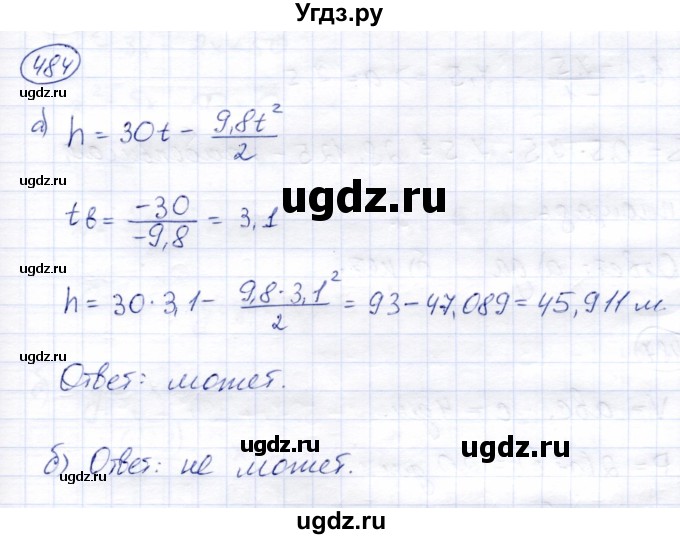 Угдз.ру
484
ugdz.ru
а) h = 30t − 9,8t² / 2
ugdz.ru
ugdz.ru
tв = −30 / −9,8 = 3,1
ugdz.ru
ugdz.ru
h = 30 · 3,1 − 9,8 · 3,1² / 2 = 93 − 47,089 = 45,911 м.
ugdz.ru
ugdz.ru
Ответ: может.
ugdz.ru
ugdz.ru
ugdz.ru
б) Ответ: не может.
ugdz.ru
ugdz.ru